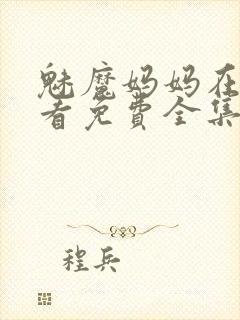 魅魔妈妈在
看免费全集
程兵